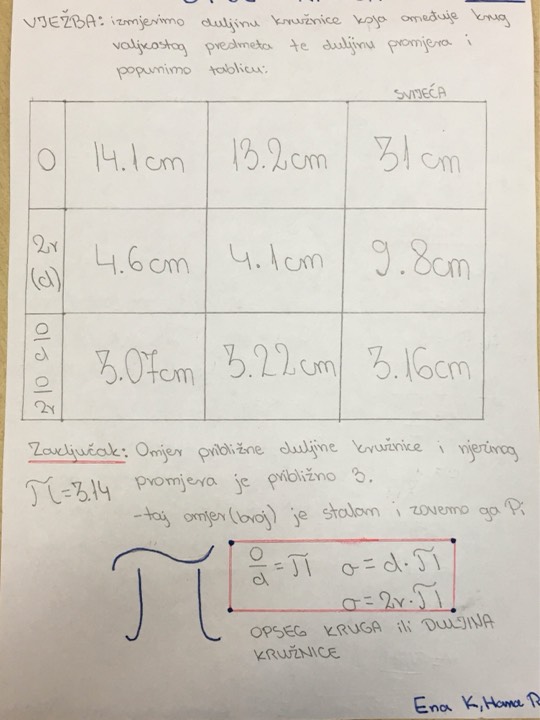 VJEŽBA: izmjerimo duljinu kružnice koja omeđuje krug
valjkastog predmeta te duljinu promjera i
popunimo tablicu:
SVIJEĆA
O 14.1cm 13.2cm 31cm
2r (d) 4.6cm 4.1cm 9.8cm
O/d O/2r 3.07cm 3.22cm 3.16cm
Zaključak: Omjer približne duljine kružnice i njezinog
π=3.14 promjera je približno 3.
-taj omjer (broj) je stalan i zovemo ga Pi
π
O/d = π o = d·π
o = 2r·π
OPSEG KRUGA ili DULJINA
KRUŽNICE
Ena K, Hana P.